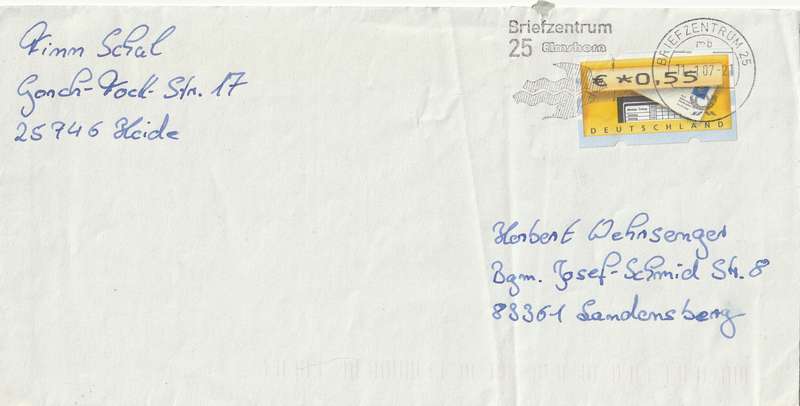 Finn Schal
Gorch-Fock-Str. 17
25746 Heide
Briefzentrum
25 Elmshorn
BRIEFZENTRUM 25
mb
€ *0,55
DEUTSCHLAND
Herbert Wehrsenger
Bgm. Josef-Schmid Str. 8
83361 Landensberg